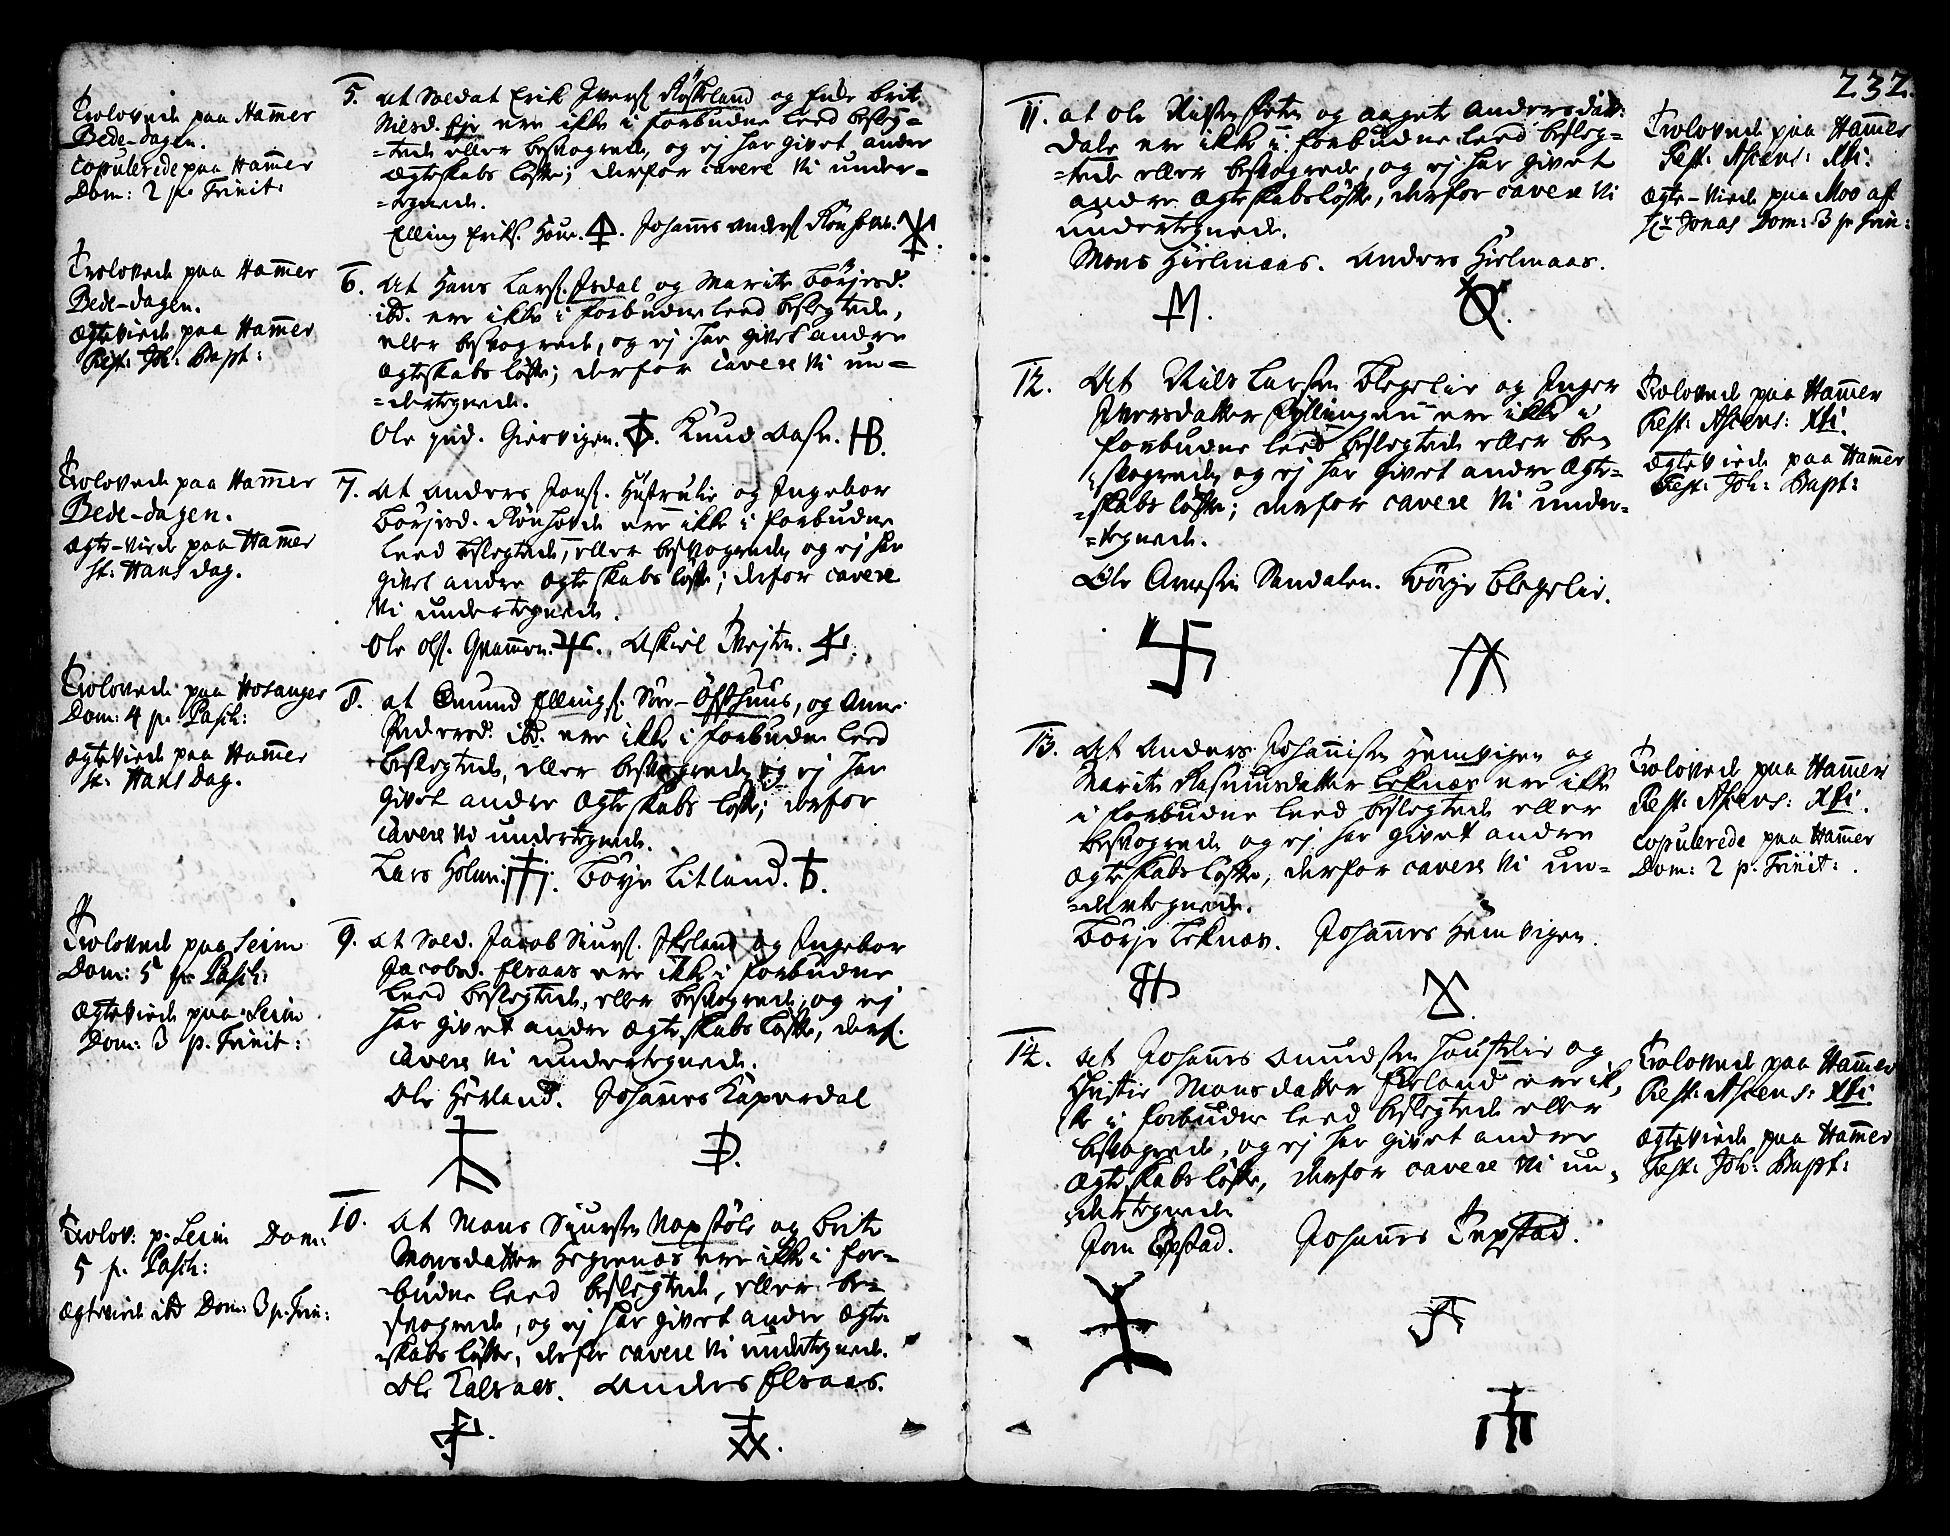 232.
Trolovede paa Hamer
Bede-dagen.
copulerede paa Hamer
Dom: 2 p. Trinit:
5. At Soldat Erik Iversf. Röskeland og Enke Brite
Nilsd. Eje ere ikke i forbudne leed besleg=
=tede eller besvogrede, og ej har givet andre
ægteskabs løfte; derfor cavere Vi under=
=tegnede.
Elling Eriks. Houe. Johannes Andersf.
Trolovede paa Hamer
Bede-dagen.
ægteviede paa Hamer
Fest: Joh: Bapt:
6. At Hans Larsf. Isdal og Marite Börjesd.
ibd. ere ikke i forbudne leed beslegtede,
eller besvogrede, og ej har givet andre
ægteskabs løfte; derfor cavere Vi un=
=dertegnede.
Ole Giervigen. Knud Aase. HB.
Trolovede paa Hamer
Bede-dagen.
ægte-viede paa Hamer
St: Hans dag.
7. At Anders Jonsf. Hustrulie og Ingebor
Börjesd. Rönhovde ere ikke i forbudne
leed beslegtede, eller besvogrede, og ej har
givet andre ægteskabs løfte; derfor cavere
Vi undertegnede.
Ole Olsf. Askiel Tvejten.
Trolovede paa Hosanger
Dom: 4 p. Pasch:
ægteviede paa Hamer
St: Hans Dag.
8. at Omund Ellingsf. Söre-Öfsthuus, og Anne
Pedersd. ibd. ere ikke i forbudne leed
beslegtede, eller besvogrede, og ej har
givet andre ægteskabs løfte; derfor
cavere Vi undertegnede.
Lars Holme. Börje Litland.
Trolovede paa Seim
Dom: 5 p. Pasch:
ægteviede paa Seim
Dom: 3 p. Trinit:
9. at Sold. Jacob Siursf. og Ingebor
Jacobsd. Elsaas ere ikke i forbudne
leed beslegtede, eller besvogrede, og ej
har givet andre ægteskabs løfte, derf.
cavere Vi undertegnede.
Ole Herland. Johannes Kaperdal
Trolov: p. Seim Dom:
5 p. Pasch:
ægteviede ibd Dom: 3 p. Trin:
10. At Mons Siursen Napstöle og Brite
Monsdatter Hegrenæs ere ikke i for=
=budne leed beslegtede, eller be=
svogrede, og ej har givet andre ægte
=skabs løfte, derfor cavere Vi undertegnede.
Ole Anders Elsaas.
11. at Ole og Aagete Andersdatt:
Dale ere ikke i forbudne leed besleg=
=tede eller besvogrede, og ej har givet
andre ægteskabsløfte, derfor cavere Vi
undertegnede.
Mons Hielmaas. Anders Hielmaas.
M.
Trolovede paa Hamer
Fest: Ascens: Xti:
ægte-viede paa Moo af
Hr Jonas Dom: 3 p. Trin:
12. At Nils Larsen Blegelie og Inger
Iversdatter ere ikke i
forbudne leed beslegtede eller be=
svogrede, og ej har givet andre ægte=
=skabs løfte; derfor cavere Vi under=
=tegnede.
Ole Arnesen Sandalen. Börje Blegelie.
Trolovede paa Hamer
Fest: Ascens: Xti.
ægteviede paa Hamer
Fest: Joh: Bapt:
13. At Anders Johannissen Hemvigen og
Marite Rasmusdatter Leknæs ere ikke
i forbudne leed beslegtede eller
besvogrede og ej har givet andre
ægteskabs løfte, derfor cavere Vi un=
=dertegnede.
Börje Leknæs. Johannes Hemvigen.
Trolovede paa Hamer
Fest: Ascens: Xti.
copulerede paa Hamer
Dom: 2 p. Trinit:
14. At Johannes Omundsen og
Monsdatter ere ik,
ke i forbudne leed beslegtede eller
besvogrede, og ej har givet andre
ægteskabs løfte, derfor cavere Vi un,
dertegnede
Johannes Tepstad.
Trolovede paa Hamer
Fest: Ascens: Xti.
ægteviede paa Hamer
Fest: Joh: Bapt: